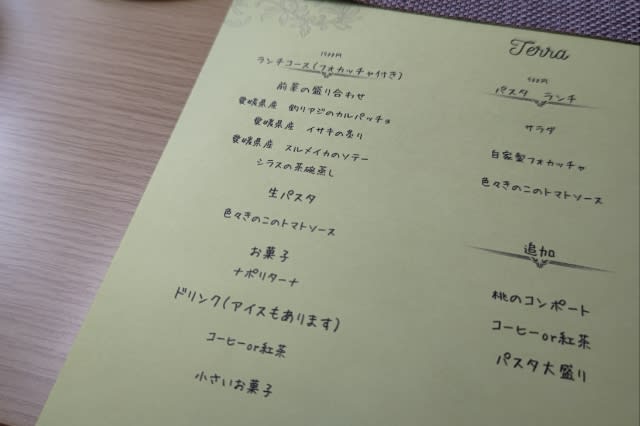 ランチコース(フォカッチャ付き)
前菜の盛り合わせ
愛媛県産 釣りアジのカルパッチョ
愛媛県産 イサキの炙り
愛媛県産 スルメイカのソテー
シラスの茶碗蒸し
生パスタ
色々きのこのトマトソース
お菓子
ナポリターナ
ドリンク(アイスもあります)
コーヒーor紅茶
小さいお菓子
Terra
パスタ ランチ
サラダ
自家製フォカッチャ
色々きのこのトマトソース
追加
桃のコンポート
コーヒーor紅茶
パスタ大盛り